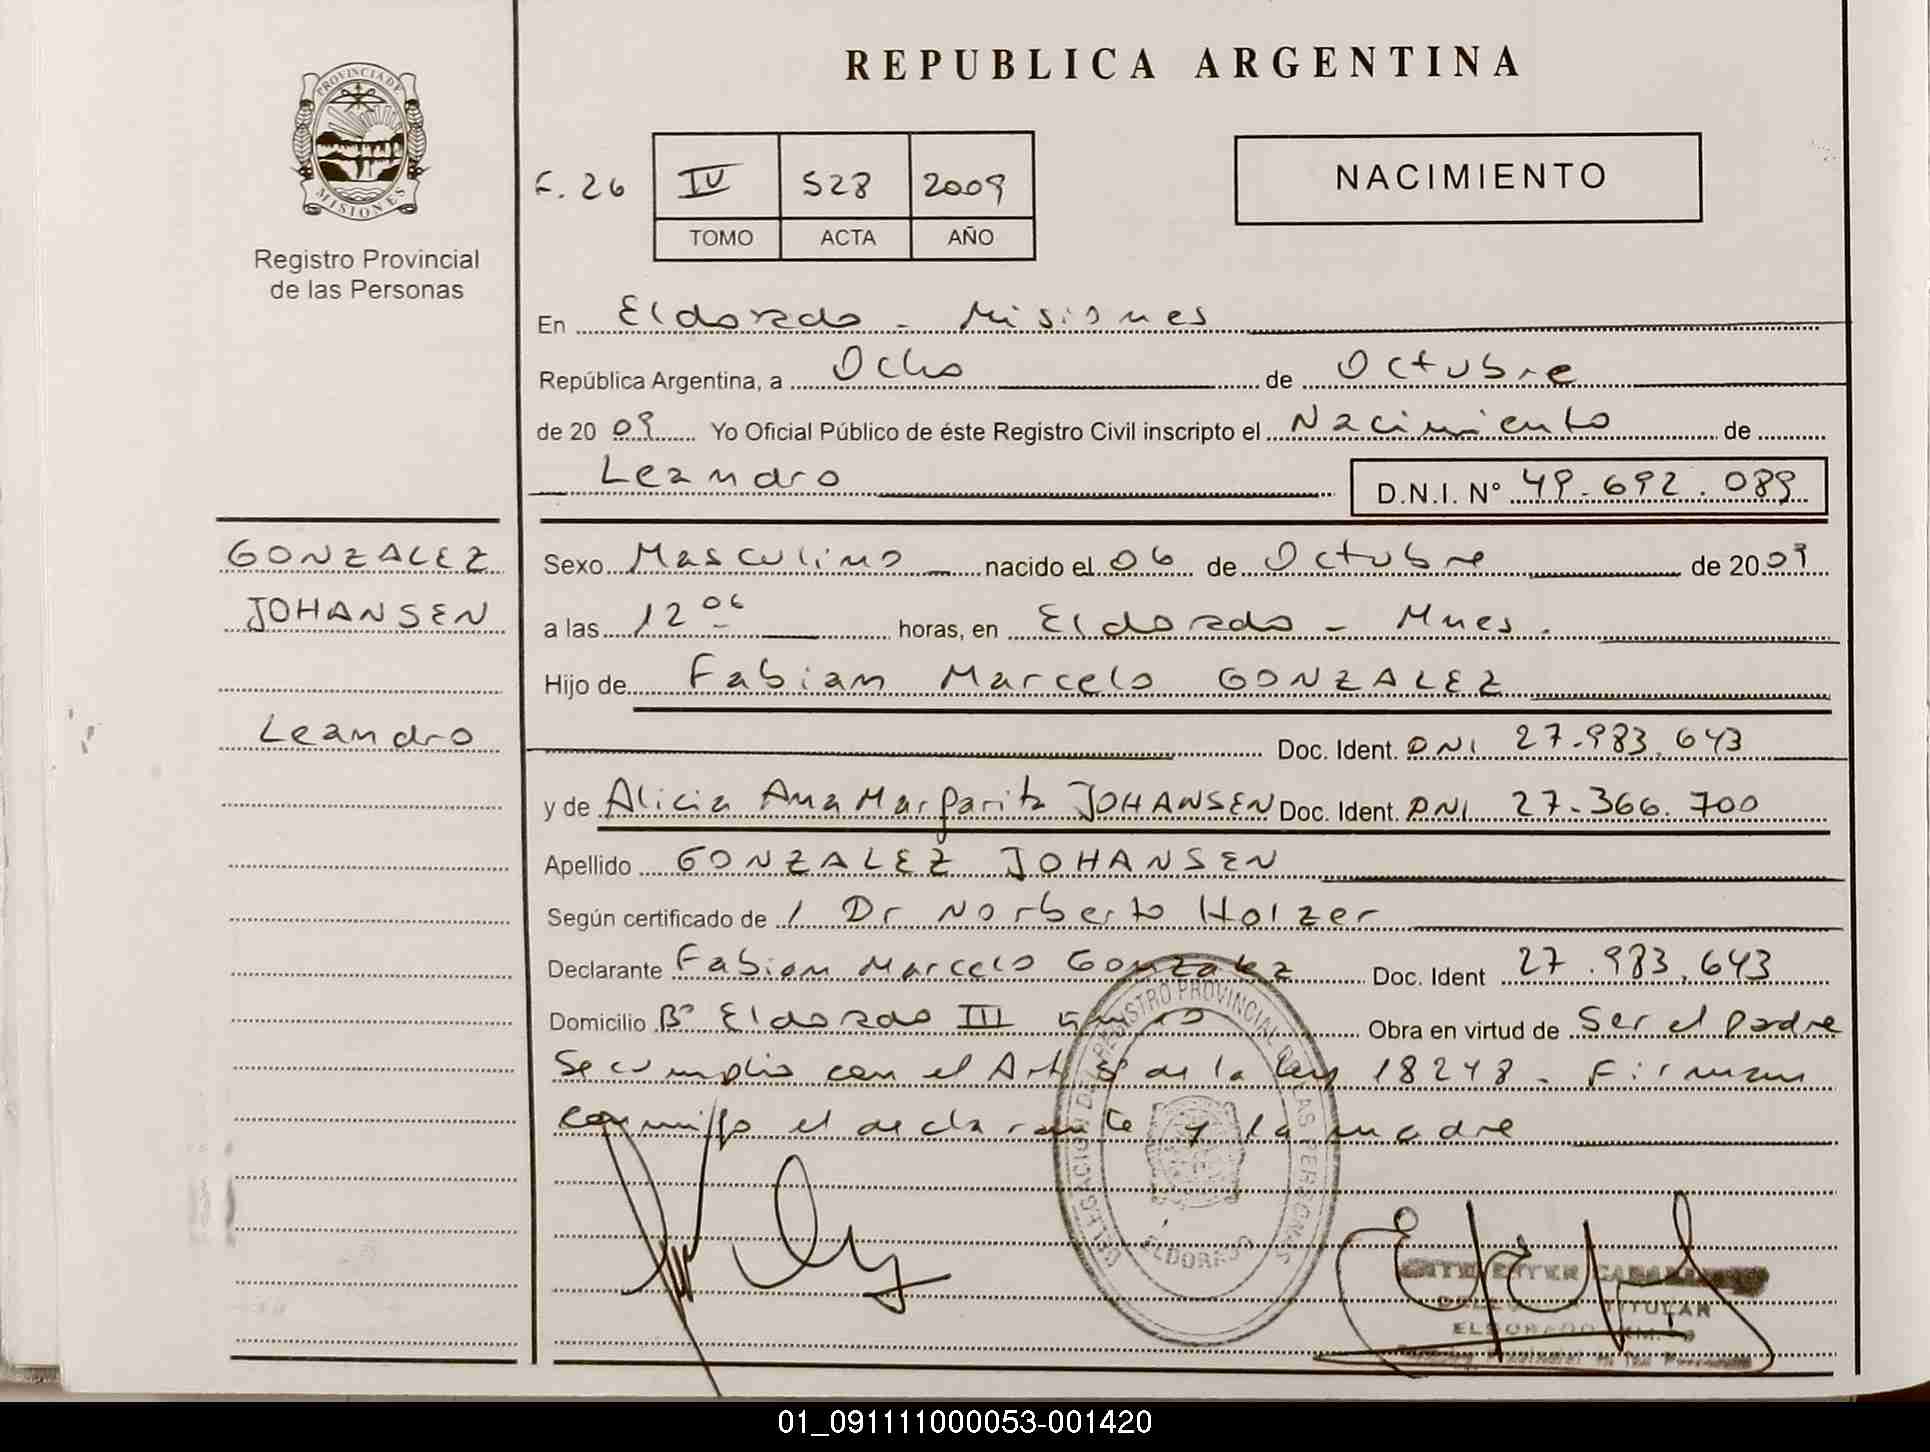 REPUBLICA ARGENTINA
PROVINCIA DE
MISIONES
Registro Provincial
de las Personas
F. 26 IV 528 2009
TOMO ACTA AÑO
NACIMIENTO
En Eldorado - Misiones
República Argentina, a Ocho de Octubre
de 20 09 Yo Oficial Público de éste Registro Civil inscripto el Nacimiento de
Leandro D.N.I. Nº 49.692.089
GONZALEZ
JOHANSEN
Leandro
Sexo Masculino nacido el 06 de Octubre de 20 09
a las 12 06 horas, en Eldorado - Mnes.
Hijo de Fabian Marcelo GONZALEZ
Doc. Ident. DNI 27.983.643
y de Alicia Ana Margarita JOHANSEN Doc. Ident. DNI 27.366.700
Apellido GONZALEZ JOHANSEN
Según certificado de / Dr Norberto Holzer
Declarante Fabian Marcelo Gonzalez Doc. Ident 27.983.643
Domicilio Bº Eldorado III Obra en virtud de Ser el padre
Se cumplio con el Art de la ley 18248 - Firman
conmigo el declarante y la madre
DELEGACION DEL REGISTRO PROVINCIAL DE LAS PERSONAS
ELDORADO
TITULAR
ELDORADO
01_091111000053-001420